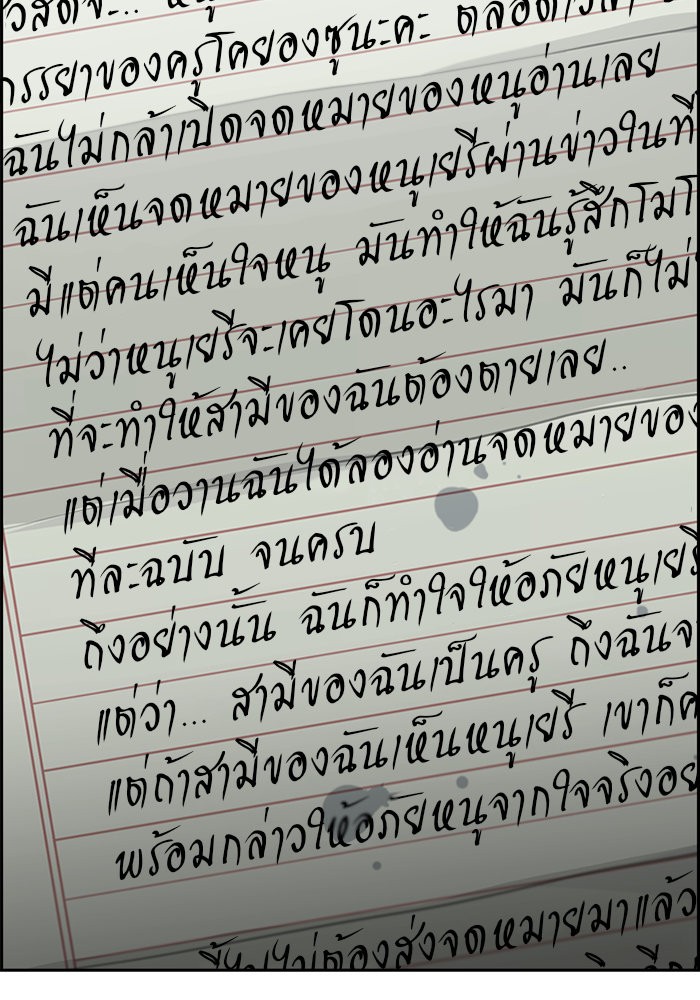 ภรรยาของครูโคยองซูนะคะ
ฉันไม่กล้าเปิดจดหมายของหนูอ่านเลย
ฉันเห็นจดหมายของหนูเยรีผ่านข่าวในที
มีแต่คนเห็นใจหนู มันทำให้ฉันรู้สึกโมโ
ไม่ว่าหนูเยรีจะเคยโดนอะไรมา มันก็ไม่
ที่จะทำให้สามีของฉันต้องตายเลย..
แต่เมื่อวานฉันได้ลองอ่านจดหมายของ
ทีละฉบับ จนครบ
ถึงอย่างนั้น ฉันก็ทำใจให้อภัยหนูเยรี
แต่ว่า... สามีของฉันเป็นครู ถึงฉันจ
แต่ถ้าสามีของฉันเห็นหนูเยรี เขาก็ค
พร้อมกล่าวให้อภัยหนูจากใจจริงอย
ต้องส่งจดหมายมาแล้ว